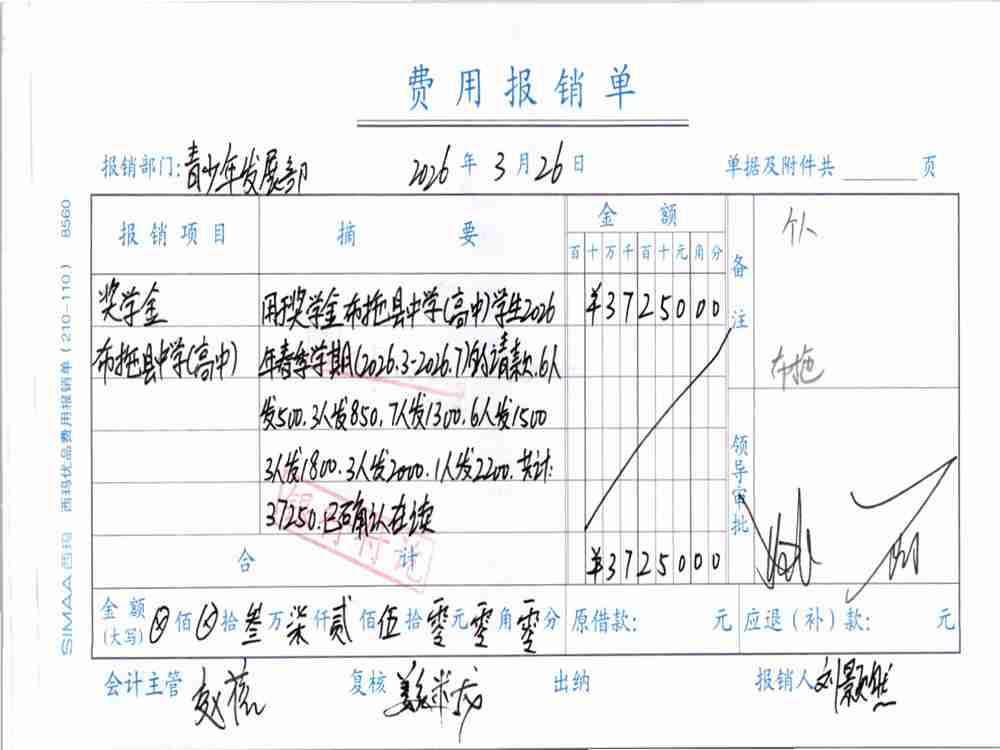 费用报销单
报销部门:青少年发展部 2026年3月26日 单据及附件共 页
报销项目 摘要 金额 备注 个人
百十万千百十元角分
奖学金 用于奖学金布拖县中学(高中)学生2026 ¥3725000
布拖县中学(高中) 年春季学期(2026.3-2026.7)的请款.6人
布拖
发500.3人发850.7人发1300.6人发1500
3人发1800.3人发2000.1人发2200.共计:
37250.已确认在读
领导审批
合计 ¥3725000
金额(大写) ⊗佰⊗拾叁万柒仟贰佰伍拾零元零角零分 原借款: 元 应退(补)款: 元
会计主管 复核 出纳 报销人 刘颢然
SIMAA西玛 西玛优品费用报销单(210-110) 8560